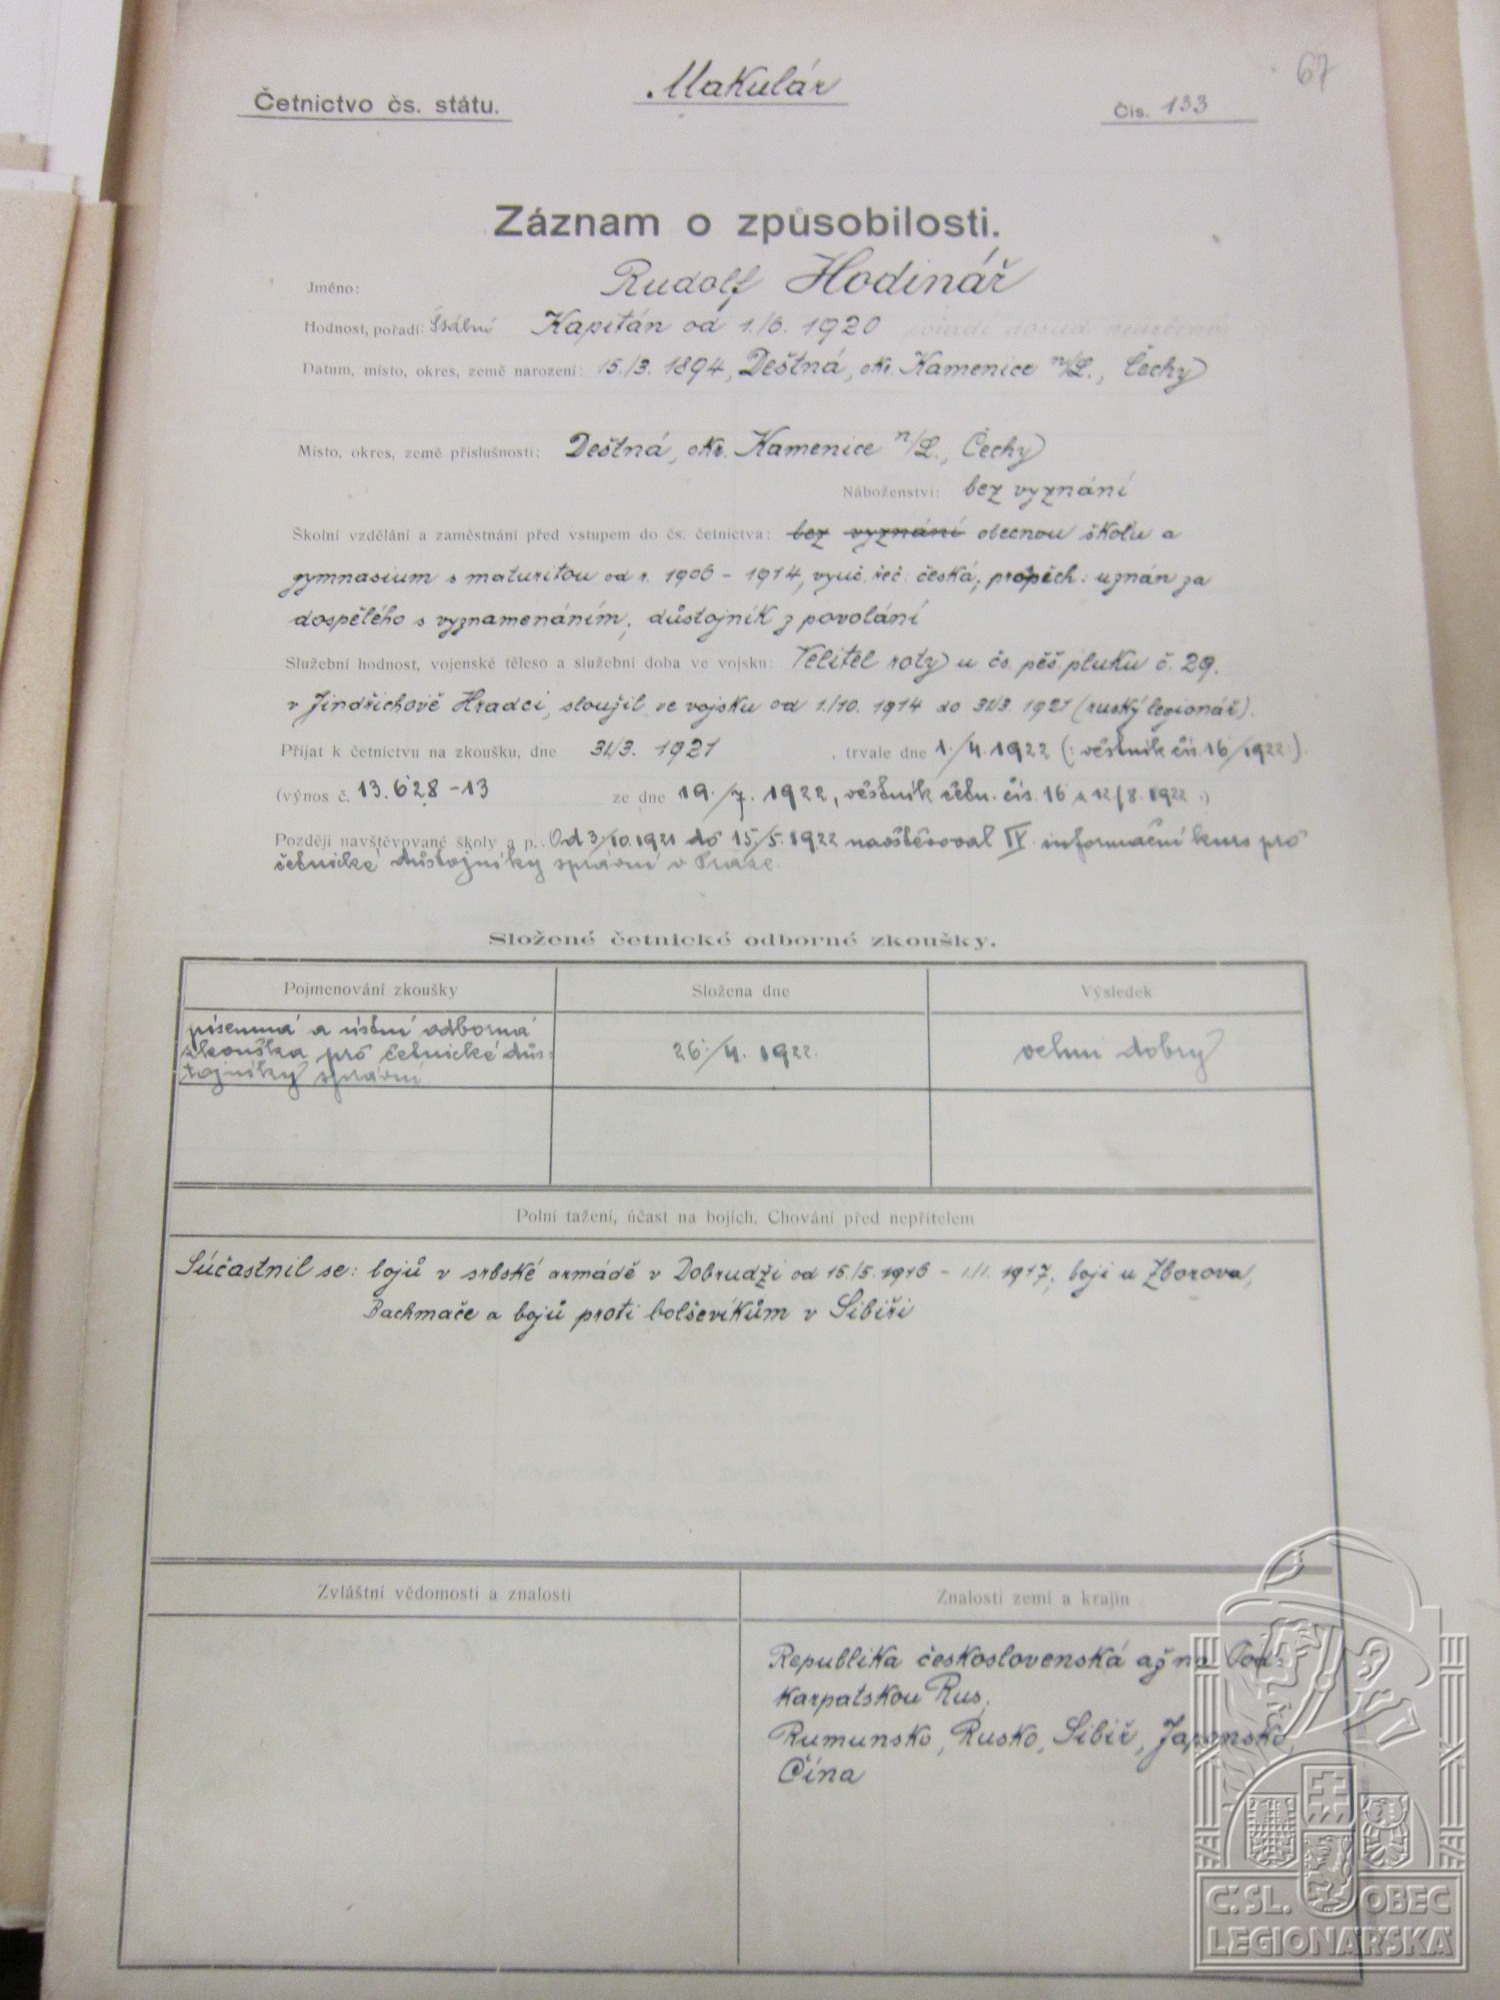 67
Četnictvo čs. státu.
Makulár
Čís. 133
Záznam o způsobilosti.
Jméno: Rudolf Hodinář
Hodnost, pořadí: Štábní Kapitán od 1./6. 1920 pořadí dosud neurčeno
Datum, místo, okres, země narození: 15./3. 1894, Deštná, okr. Kamenice n/L., Čechy
Místo, okres, země příslušnosti: Deštná, okr. Kamenice n/L., Čechy
Náboženství: bez vyznání
Školní vzdělání a zaměstnání před vstupem do čs. četnictva: bez vyznání obecnou školu a
gymnasium s maturitou od r. 1906 - 1914, vyuč. řeč. česká; prospěch: uznán za
dospělého s vyznamenáním; důstojník z povolání
Služební hodnost, vojenské těleso a služební doba ve vojsku: Velitel roty u čs. pěš. pluku č. 29.
v Jindřichově Hradci, sloužil ve vojsku od 1./10. 1914 do 31/3. 1921 (ruský legionář).
Přijat k četnictvu na zkoušku, dne 31/3. 1921, trvale dne 1./4. 1922 (: věstník čís. 16/1922:)
(výnos č. 13.628-13 ze dne 19./7. 1922, věstník četn. čís. 16 z 12/8. 1922.)
Později navštěvované školy a p.: Od 3/10. 1921 do 15/5. 1922 navštěvoval IV. informační kurs pro
četnické důstojníky správní v Praze.
Složené četnické odborné zkoušky.
Pojmenování zkoušky Složena dne Výsledek
písemná a ústní odborná
zkouška pro četnické důs-
tojníky správní
26./4. 1922.
velmi dobrý
Polní tažení, účast na bojích. Chování před nepřítelem
Súčastnil se: bojů v srbské armádě v Dobrudži od 15./5. 1916 - 1./1. 1917, boji u Zborova,
Bachmače a bojů proti bolševikům v Sibiři
Zvláštní vědomosti a znalosti Znalosti zemí a krajin
Republika československá až na Pod-
karpatskou Rus,
Rumunsko, Rusko, Sibiř, Japonsko,
Čína
Č.SL. OBEC
LEGIONÁŘSKÁ